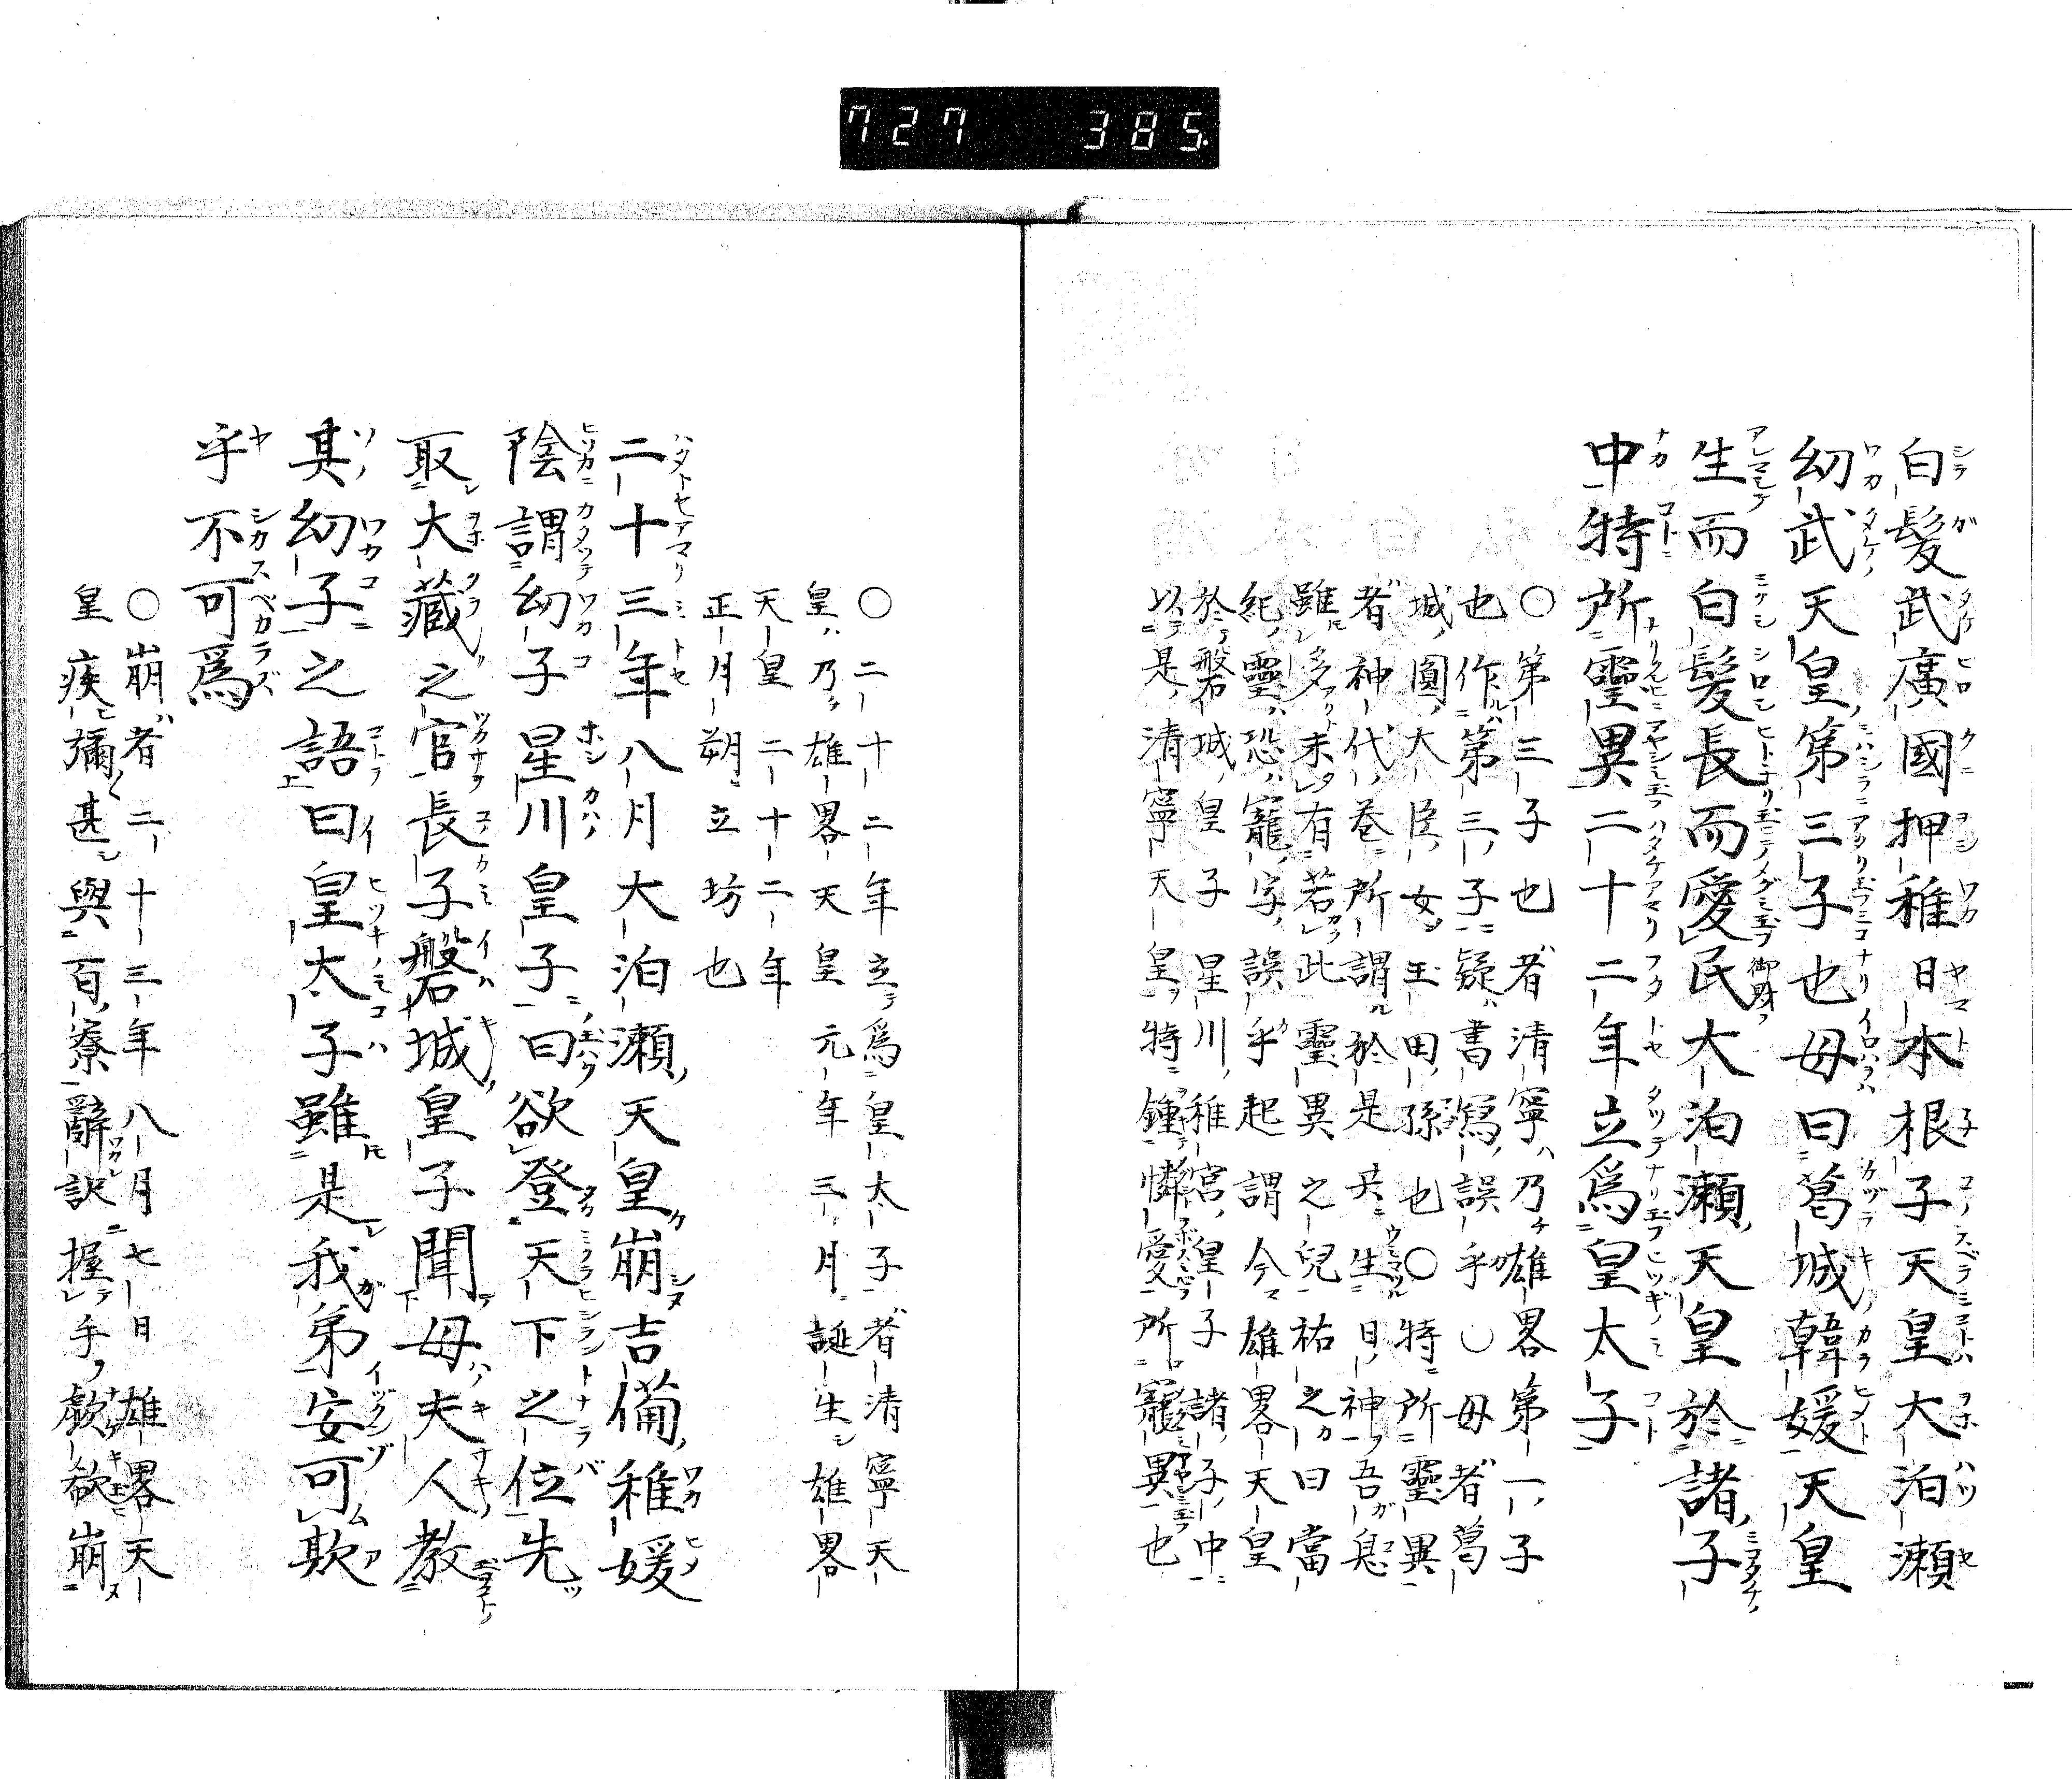 727 385
白髮武廣國押稚日本根子天皇大泊瀬
幼武天皇第三子也母曰葛城韓媛天皇
生而白髮長而愛民大泊瀬天皇於諸子
中特所靈異二十二年立爲皇太子
○第三子也者清寧乃雄畧第一子
也作第三子疑書寫誤乎○母者葛
城圓大臣女玉田孫也○特所靈異
者神代卷所謂於是共生日神吾息
雖多未有若此靈異之兒祐之曰當
紀靈恐寵字誤乎起謂今雄畧天皇
於磐城皇子星川稚宮皇子諸子中
以是清寧天皇特鍾憐愛所寵異也
○二十二年立爲皇太子者清寧天
皇乃雄畧天皇元年三月誕生雄畧
天皇二十二年
正月朔立坊也
二十三年八月大泊瀬天皇崩吉備稚媛
陰謂幼子星川皇子曰欲登天下之位先
取大藏之官長子磐城皇子聞母夫人教
其幼子之語曰皇太子雖是我弟安可欺
乎不可爲
○崩者二十三年八月七日雄畧天
皇疾彌甚與百寮辭訣握手歔欷崩